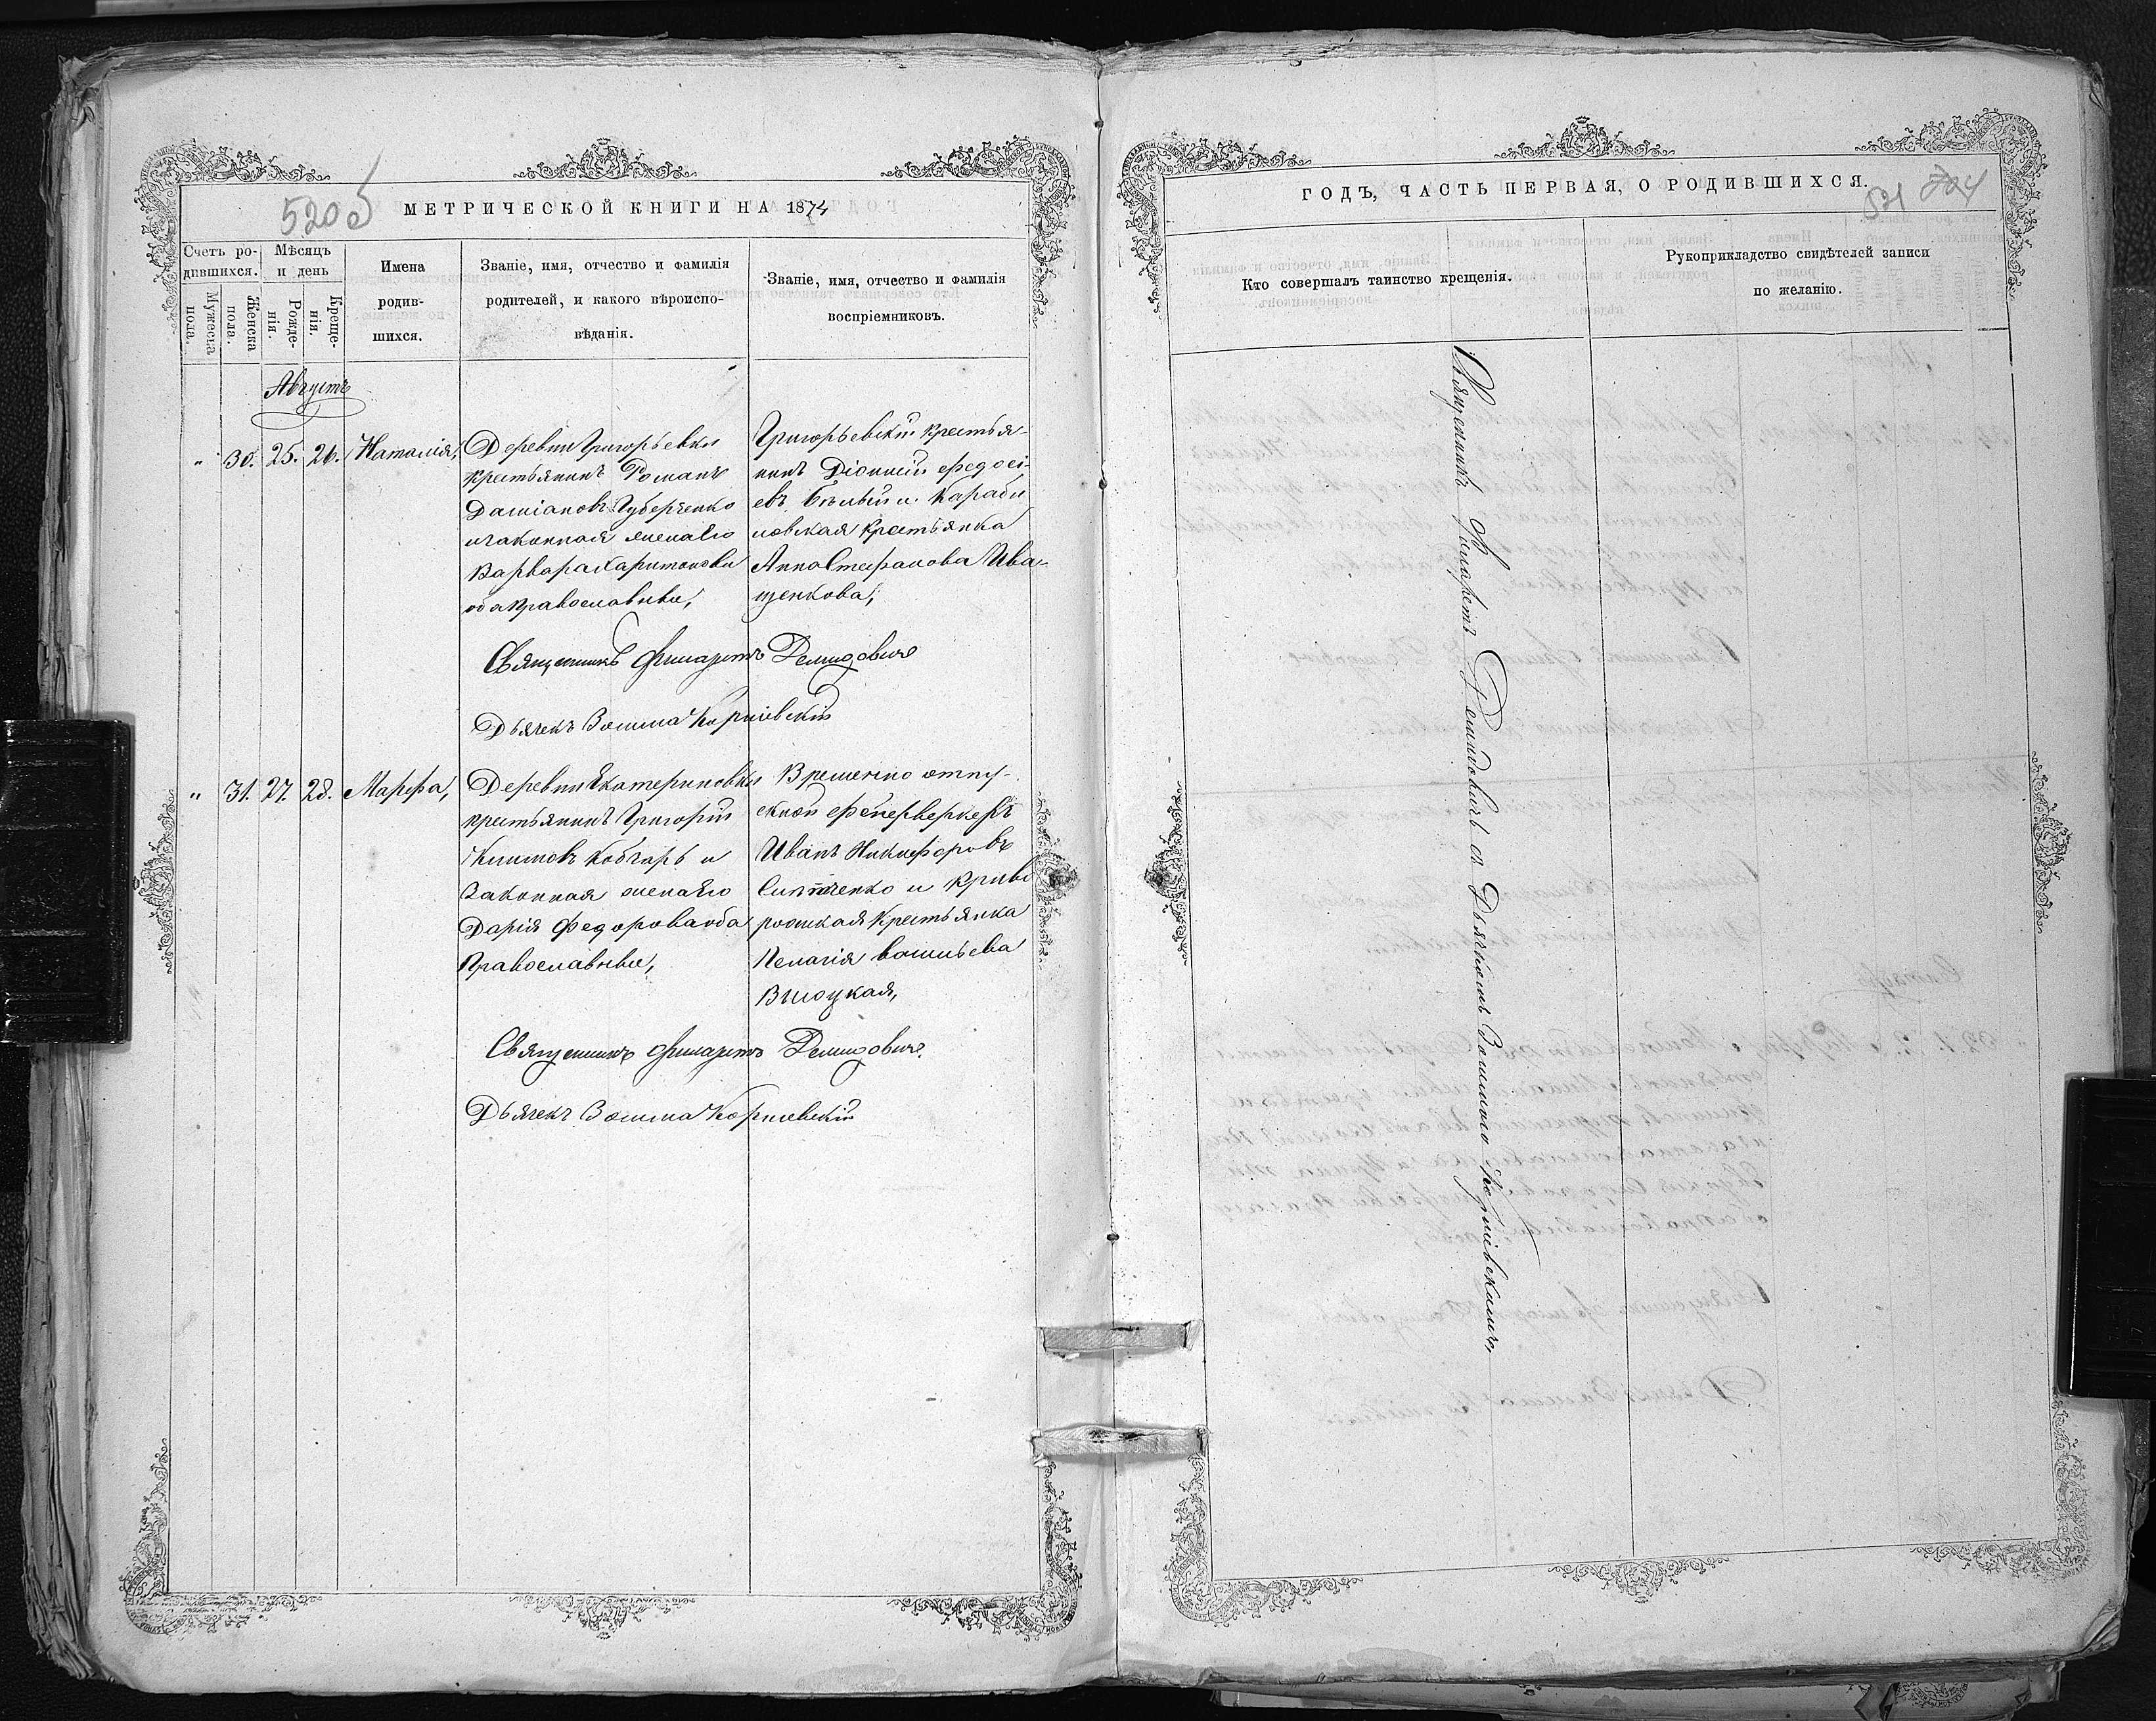 520 об
МЕТРИЧЕСКОЙ КНИГИ НА 1874
Счетъ ро-
дившихся.
Мѣсяцъ
и день
Мужеска
пола.
Женска
пола.
Рожде-
нія.
Креще-
нія.
Имена
родив-
шихся.
Званіе, имя, отчество и фамилія
родителей, и какого вѣроиспо-
вѣданія.
Званіе, имя, отчество и фамилія
воспріемниковъ.
Августъ
" 30. 25. 26. Наталія,
Деревни Григорьевки
крестьянинъ Романъ
Даміановъ Губерченко
и законная жена его
Варвара Харитонова
оба православные,
Григорьевскій крестья-
нинъ Діонисій Федосі-
евъ Бѣлый и Караби
новская крестьянка
Анна Стефанова Ива-
щенкова,
Священникъ Филаретъ Демидовичъ
Дьячекъ Зосима Корніевскій
" 31. 27. 28. Марфа,
Деревни Екатериновки
крестьянинъ Григорій
Климовъ Кобчарь и
законная жена его
Дарія Федорова оба
Православные,
Временно отпу-
скной фейерверкеръ
Иванъ Никифоровъ
и Криво
рожская крестьянка
Пелагія Васильева
Высоцкая,
Священникъ Филаретъ Демидовичъ.
Дьячекъ Зосима Корніевскій
ГОДЪ, ЧАСТЬ ПЕРВАЯ, О РОДИВШИХСЯ.
521 704
Кто совершалъ таинство крещенія.
Рукоприкладство свидѣтелей записи
по желанію.
Священникъ Филаретъ Демидовичъ съ Дьячкомъ Зосимою Корніевскимъ,